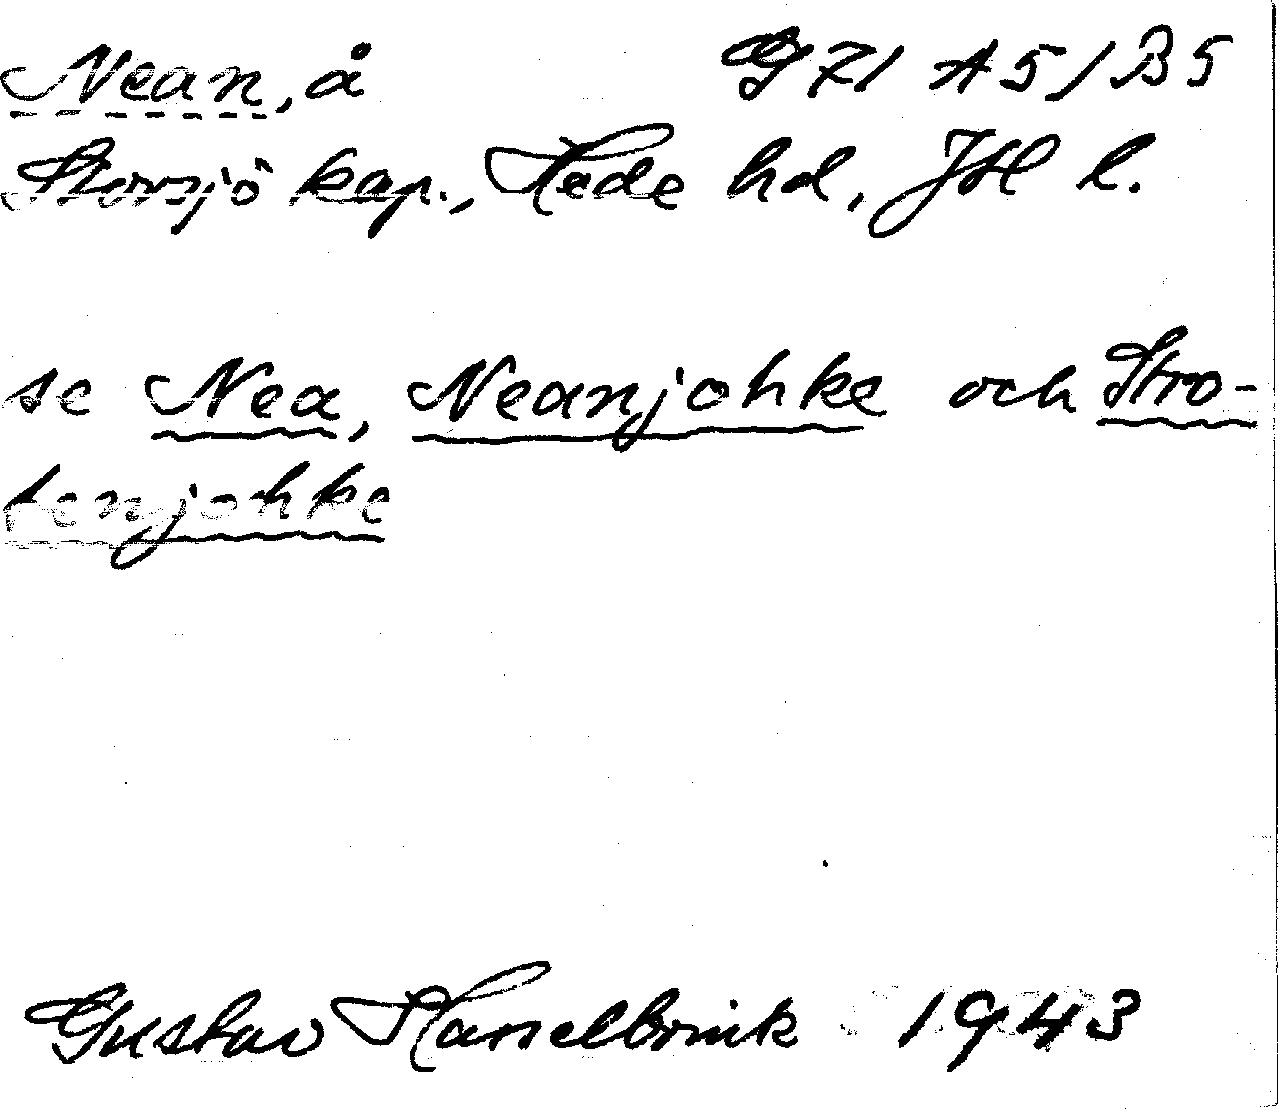 Nean, å G71 A5/B5
Storsjö kap., Hede hd, JH l.
se Nea, Neanjohke och Stro-
kenjohke
Gustav Hasselbrink 1943